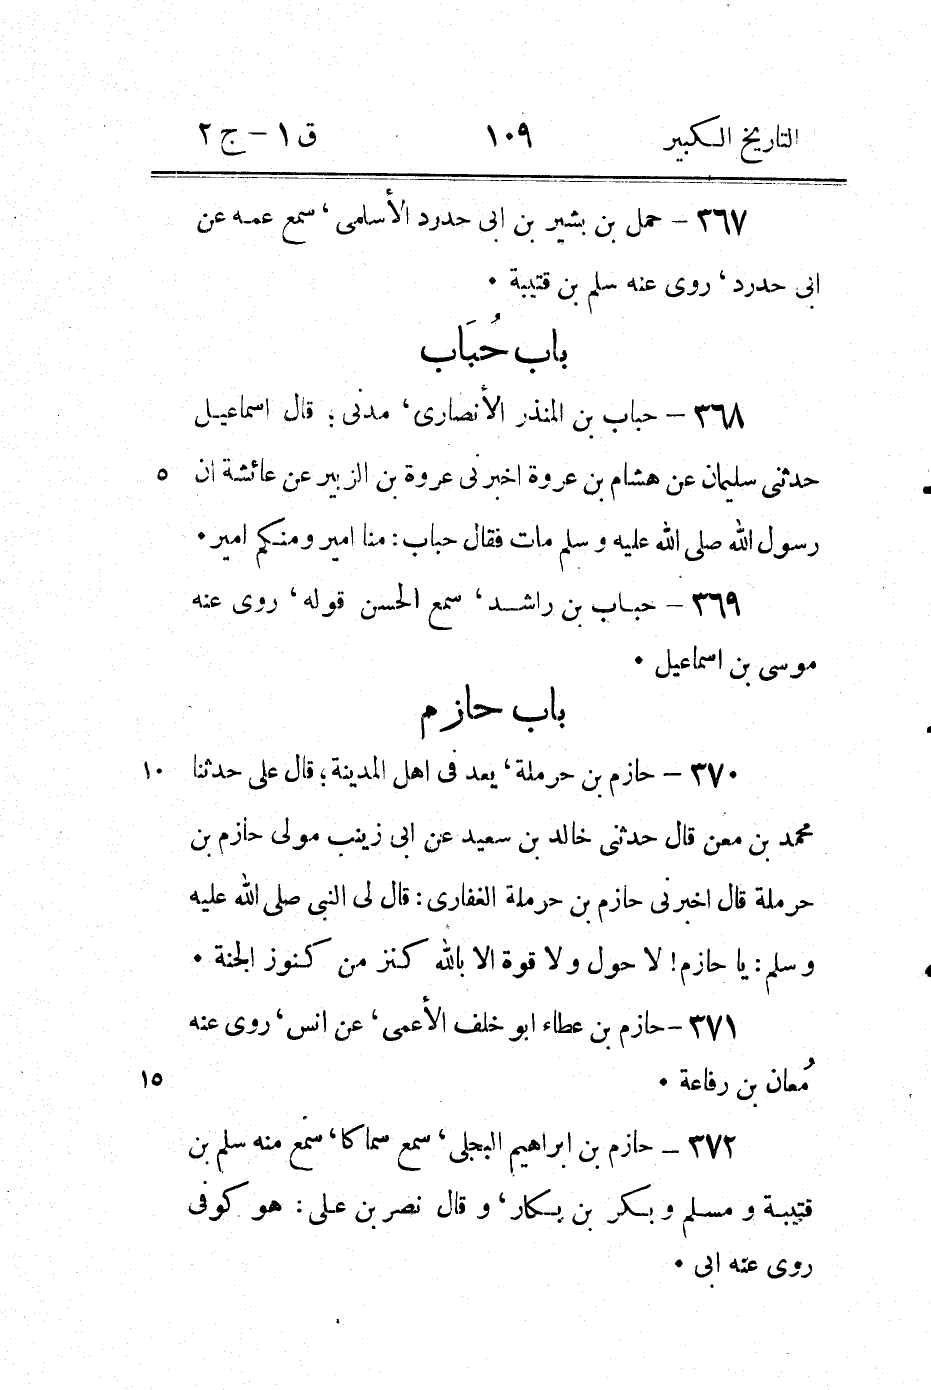 التاريخ الكبير ١٠٩ ق ١ - ج ٢
٣٦٧ - حمل بن بشير بن ابى حدرد الأسلمى، سمع عمه عن
ابى حدرد، روى عنه سلم بن قتيبة .
باب حُبَاب
٣٦٨ - حباب بن المنذر الأنصارى، مدنى؛ قال اسماعيل
حدثنى سليمان عن هشام بن عروة اخبرنى عروة بن الزبير عن عائشة ان ٥
رسول الله صلى الله عليه و سلم مات فقال حباب: منا امير ومنكم امير .
٣٦٩ - حباب بن راشد، سمع الحسن قوله، روى عنه
موسى بن اسماعيل .
باب حازم
٣٧٠ - حازم بن حرملة، يعد فى اهل المدينة؛ قال على حدثنا ١٠
محمد بن معن قال حدثنى خالد بن سعيد عن ابى زينب مولى حازم بن
حرملة قال اخبرنى حازم بن حرملة الغفارى: قال لى النبى صلى الله عليه
و سلم: يا حازم! لا حول و لا قوة الا بالله كنز من كنوز الجنة .
٣٧١ - حازم بن عطاء ابو خلف الأعمى، عن انس، روى عنه
مُعان بن رفاعة . ١٥
٣٧٢ - حازم بن ابراهيم البجلى، سمع سماكا، سمع منه سلم بن
قتيبة و مسلم و بكر بن يكار، و قال نصر بن على: هو كوفى
روى عنه ابى .